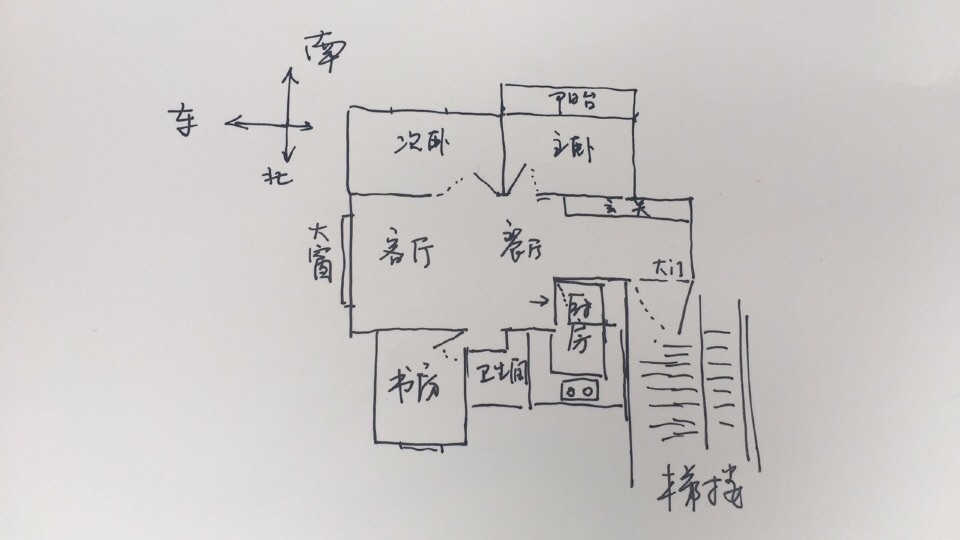 南
东
北
阳台
次卧
主卧
玄关
大窗
客厅
餐厅
大门
厨房
书房
卫生间
梯楼